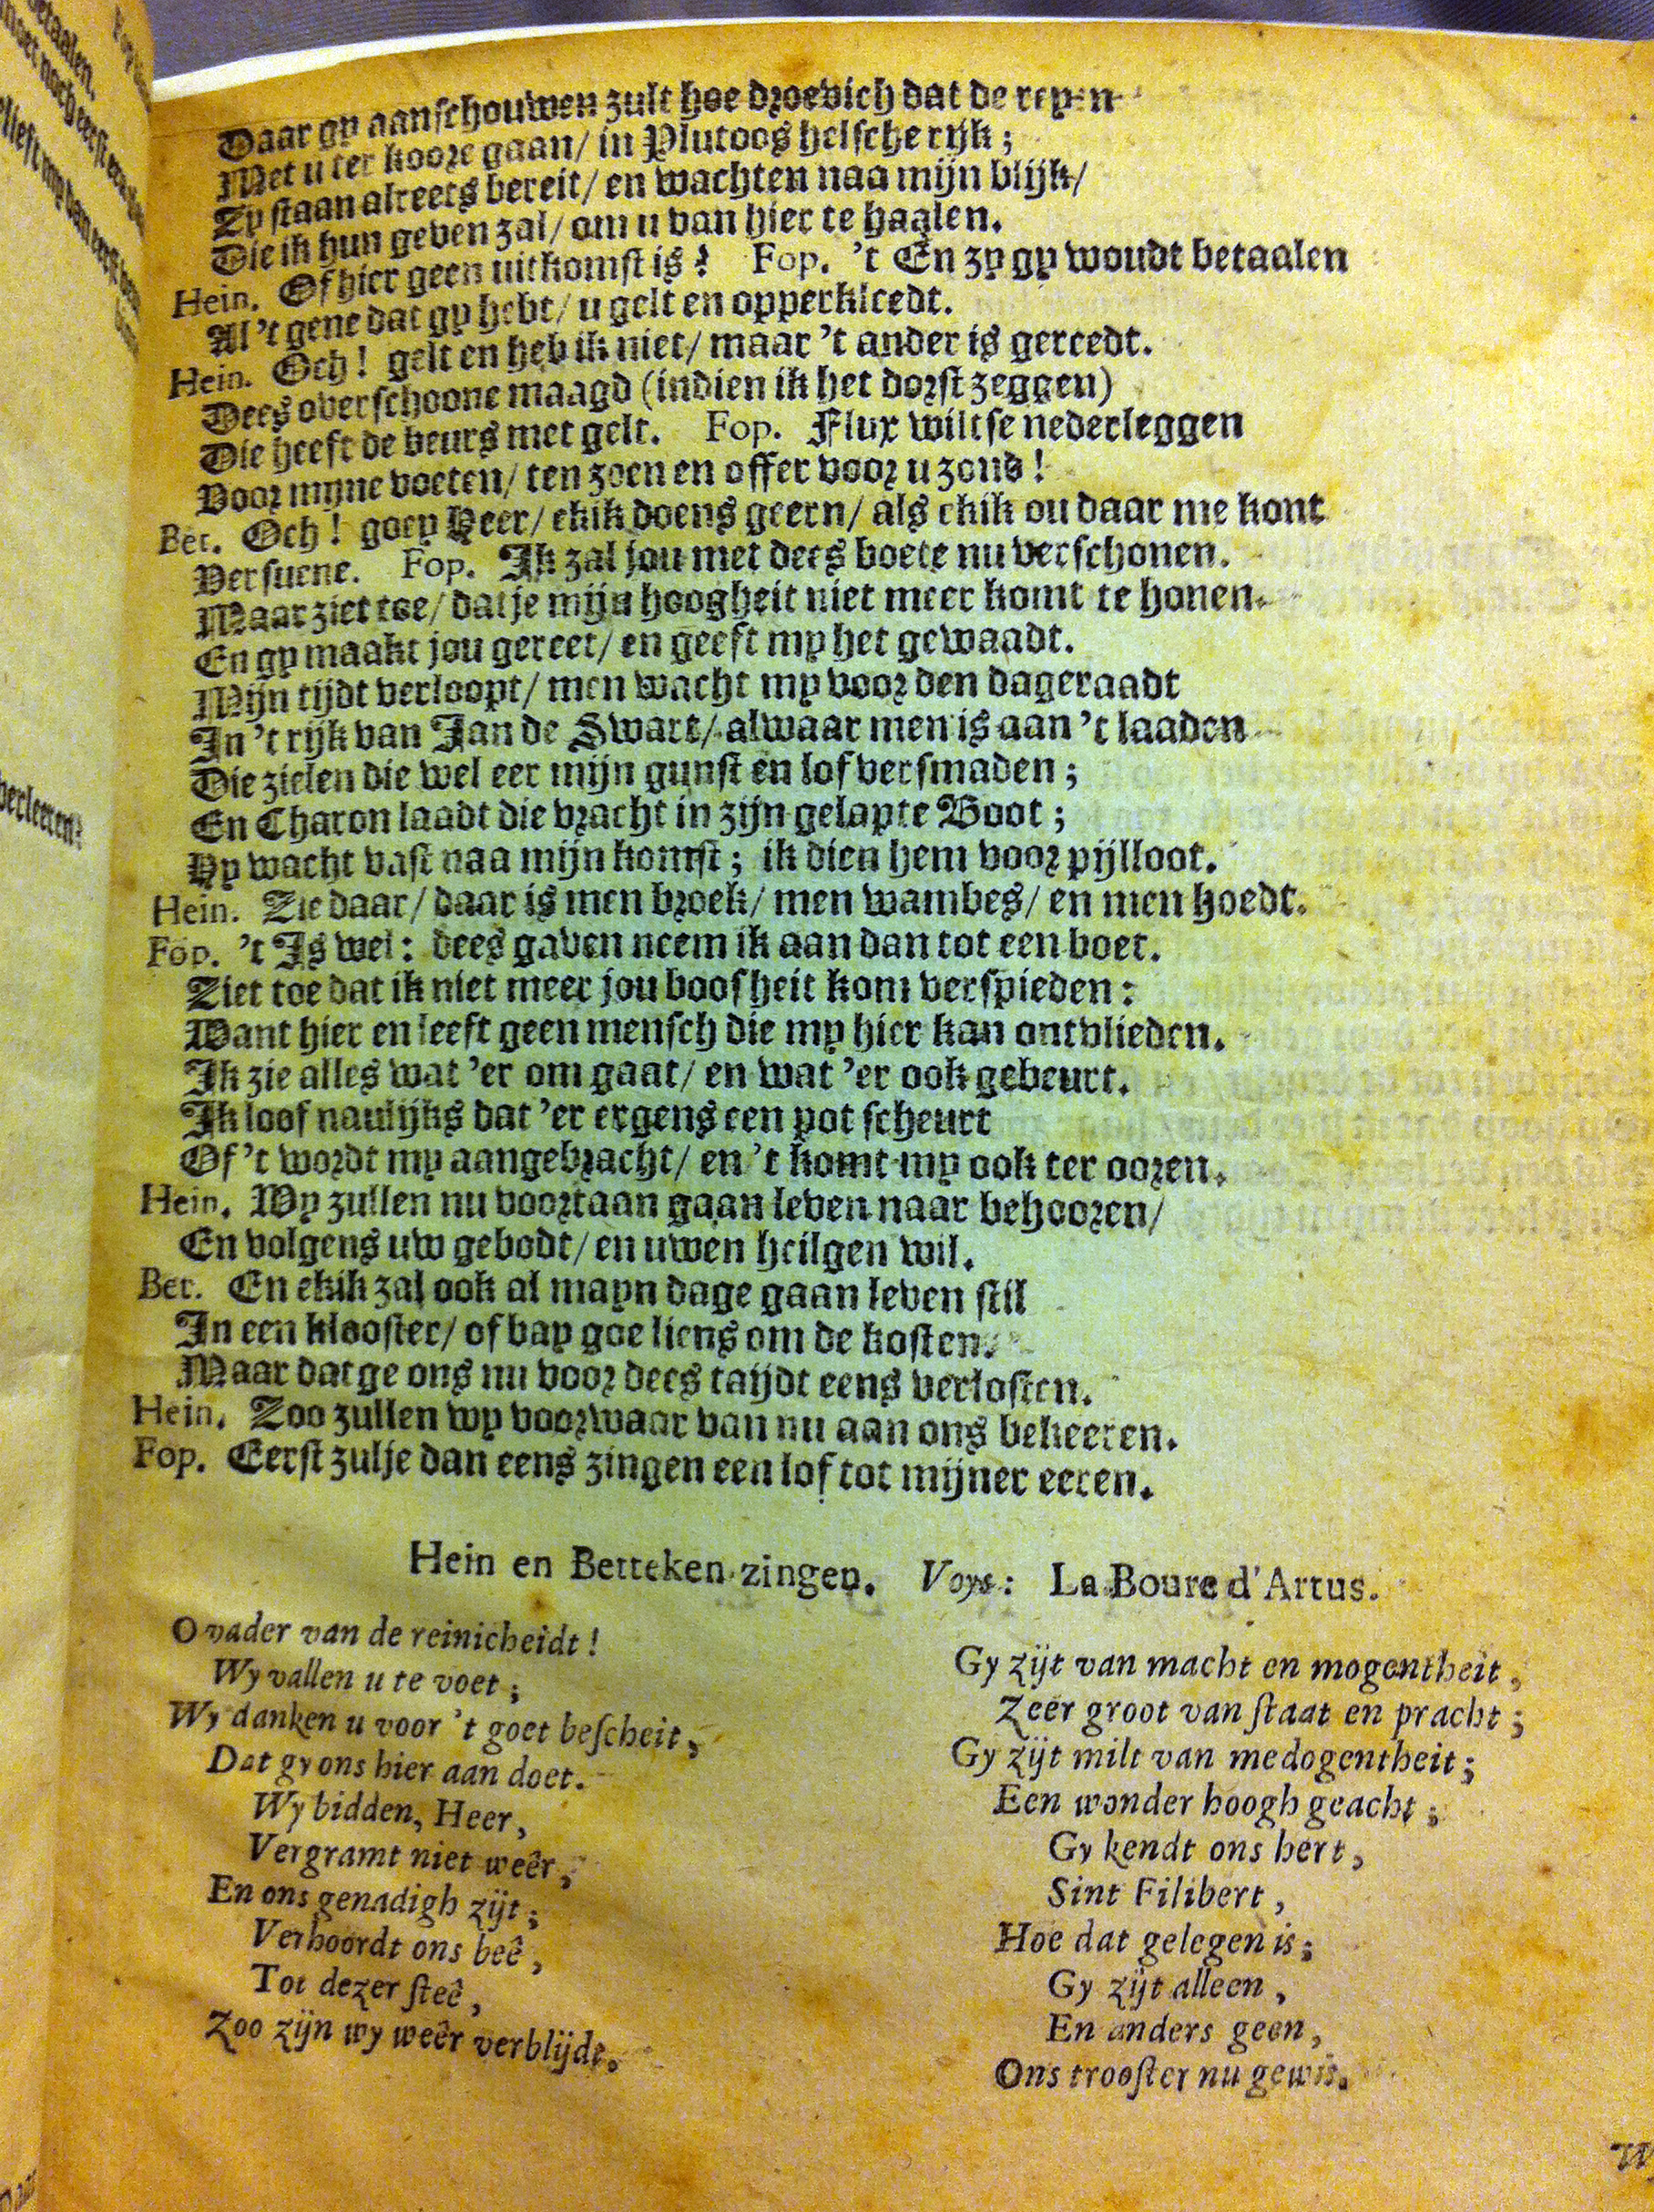 Daar gy aanschouwen zult hoe droevich dat de reyen
Met u ter koore gaan/ in Plutoos helsche rijk;
Zy staan alreets bereit/ en wachten naa mijn blijk/
Die ik hun geven zal/ om u van hier te haalen.
Hein. Of hier geen uitkomst is? Fop. 't En zy gy woudt betaalen
Al 't gene dat gy hebt/ u gelt en opperkleedt.
Hein. Och! gelt en heb ik niet/ maar 't ander is gereedt.
Dees overschoone maagd (indien ik het dorst zeggen)
Die heeft de beurs met gelt. Fop. Flux wiltse nederleggen
Voor mijne voeten/ ten zoen en offer voor u zond!
Bet. Och! goey Heer/ ekik doens geern/ als ekik ou daar me kont
Versuene. Fop. Ik zal jou met dees boete nu verschonen.
Maar ziet toe/ dat je mijn hoogheit niet meer komt te honen.
En gy maakt jou gereet/ en geeft my het gewaadt.
Mijn tijdt verloopt/ men wacht my voor den dageraadt
In 't rijk van Jan de Swart/ alwaar men is aan 't laaden
Die zielen die wel eer mijn gunst en lof versmaden;
En Charon laadt die vracht in zijn gelapte Boot;
Hy wacht vast naa mijn komst; ik dien hem voor pijlloot.
Hein. Zie daar/ daar is men broek/ men wambes/ en men hoedt.
Fop. 't Is wel: dees gaven neem ik aan dan tot een boet.
Ziet toe dat ik niet meer jou boosheit kom verspieden:
Want hier en leeft geen mensch die my hier kan ontvlieden.
Ik zie alles wat 'er om gaat/ en wat 'er ook gebeurt.
Ik loof naulijks dat 'er ergens een pot scheurt
Of 't wordt my aangebracht/ en 't komt my ook ter ooren.
Hein. Wy zullen nu voortaan gaan leven naar behooren/
En volgens uw gebodt/ en uwen heilgen wil.
Bet. En ekik zal ook al mayn dage gaan leven stil
In een klooster/ of bay goe liens om de kosten.
Maar dat ge ons nu voor dees taijdt eens verlosten.
Hein. Zoo zullen wy voorwaar van nu aan ons bekeeren.
Fop. Eerst zulje dan eens zingen een lof tot mijner eeren.
Hein en Betteken zingen. Voys: La Boure d'Artus.
O vader van de reinicheidt!
Wy vallen u te voet;
Wy danken u voor 't goet bescheit,
Dat gy ons hier aan doet.
Wy bidden, Heer,
Vergramt niet weêr,
En ons genadigh zijt;
Verhoordt ons beê,
Tot dezer steê,
Zoo zijn wy weêr verblijdt.
Gy zijt van macht en mogentheit,
Zeer groot van staat en pracht;
Gy zijt milt van medogentheit;
Een wonder hoogh geacht;
Gy kendt ons hert,
Sint Filibert,
Hoe dat gelegen is;
Gy zijt alleen,
En anders geen,
Ons trooster nu gewis.
verleeren?